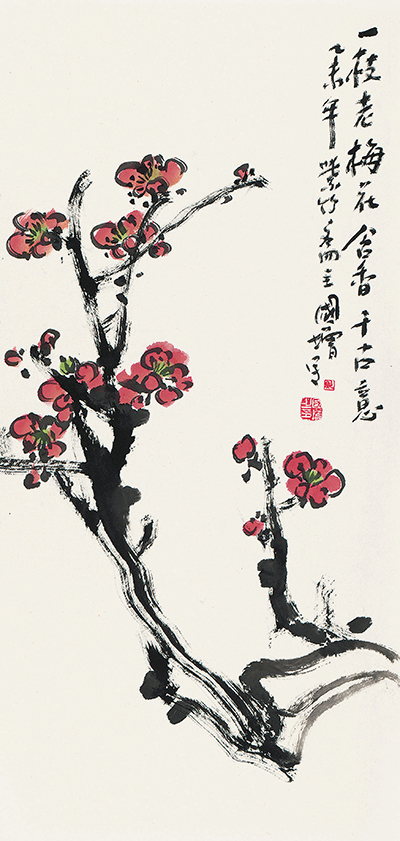 一枝老梅花含香千古意
乙未年紫竹斋主國增写